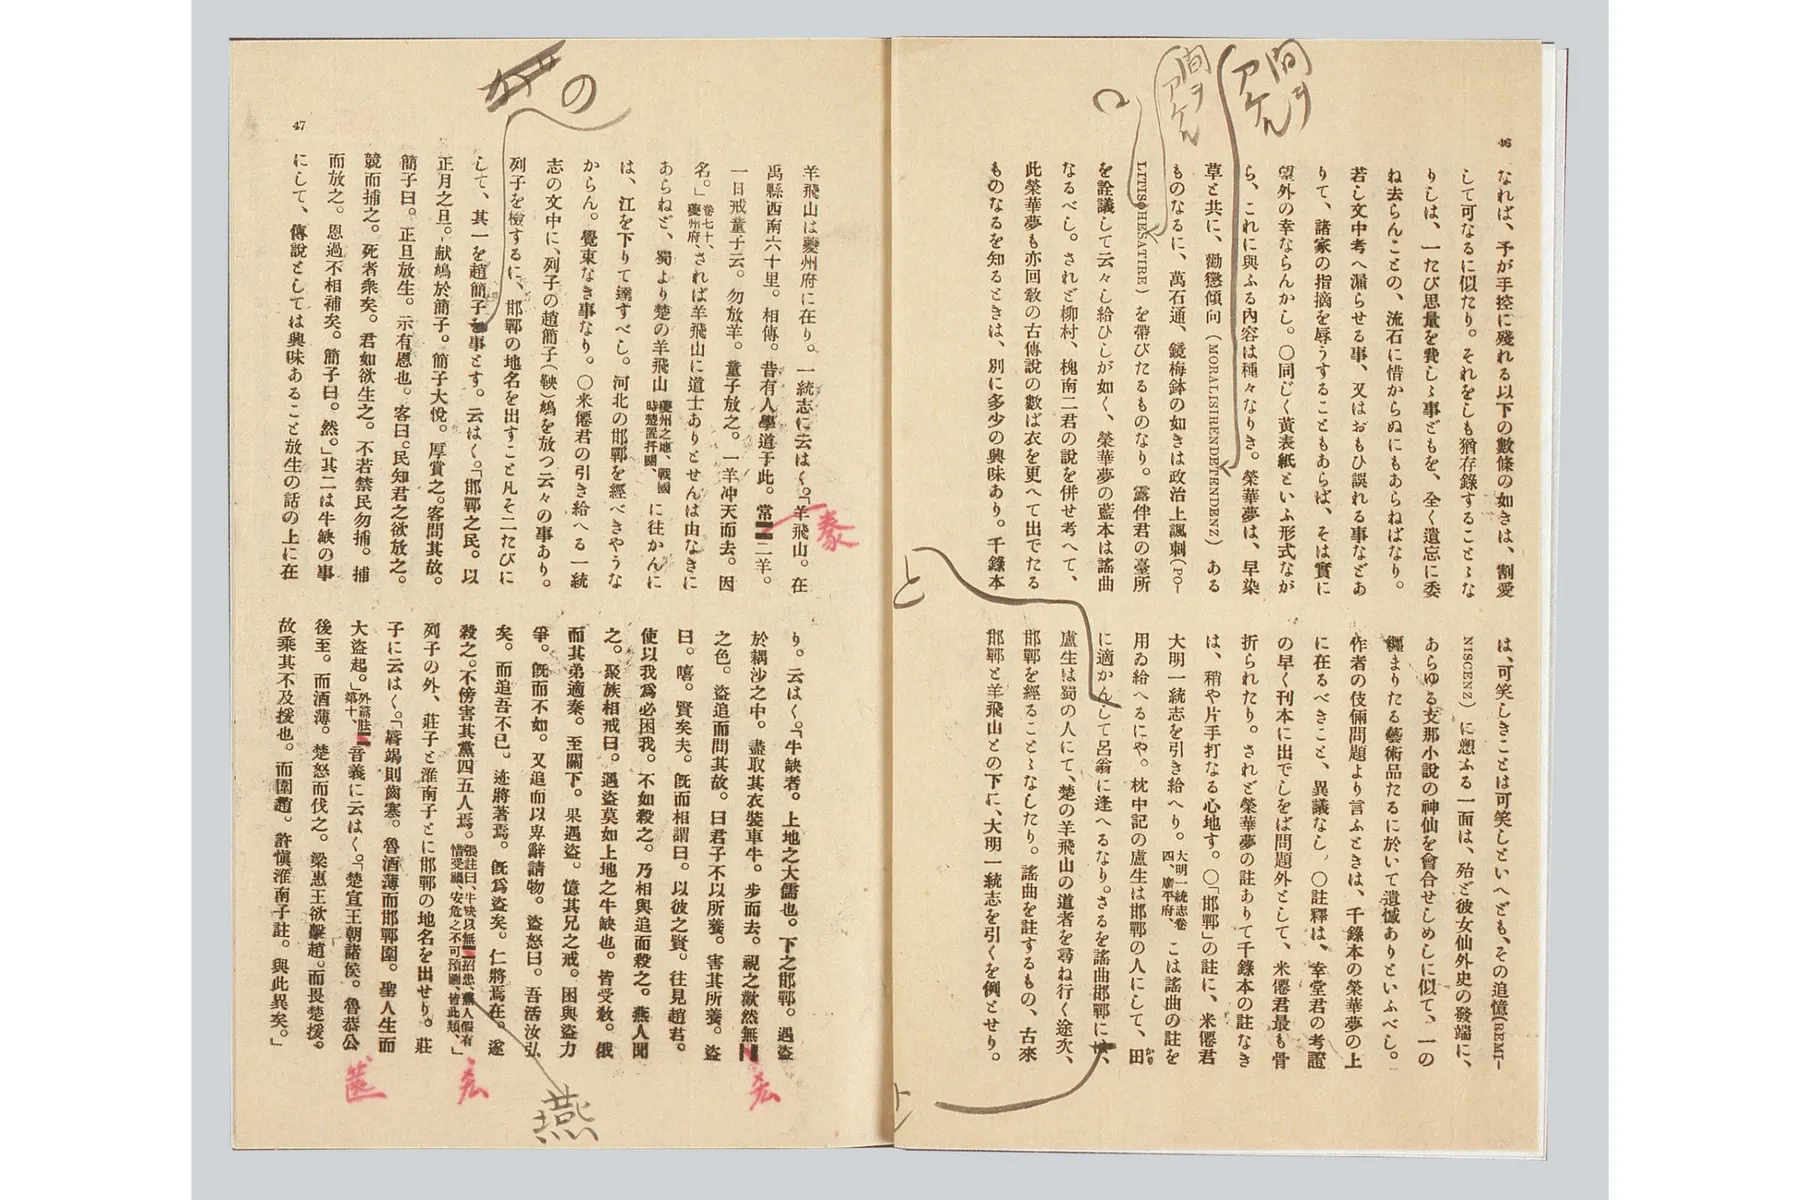 46
なれば、予が手控に殘れる以下の數條の如きは、割愛
して可なるに似たり。それをしも猶存錄することゝな
りしは、一たび思量を費しゝ事どもを、全く遺忘に委
ね去らんことの、流石に惜からぬにもあらねばなり。
若し文中考へ漏らせる事、又はおもひ誤れる事などあ
りて、諸家の指摘を辱うすることもあらば、そは實に
望外の幸ならんかし。〇同じく黃表紙といふ形式なが
ら、これに與ふる內容は種々なりき。榮華夢は、早染
草と共に、勸懲傾向(MORALISIRENDETENDENZ)ある
ものなるに、萬石通、鏡梅鉢の如きは政治上諷刺(PO-
LITISCHESATIRE)を帶びたるものなり。露伴君の臺所
を詮議して云々し給ひしが如く、榮華夢の藍本は謠曲
なるべし。されど柳村、槐南二君の說を併せ考へて、
此榮華夢も亦回敎の古傳說の數ば衣を更へて出でたる
ものなるを知るときは、別に多少の興味あり。千錄本
は、可笑しきことは可笑しといへども、その追憶(REMI-
NISCENZ)に愬ふる一面は、殆ど彼女仙外史の發端に、
あらゆる支那小說の神仙を會合せしめしに似て、一の
纏まりたる藝術品たるに於いて遺憾ありといふべし。
作者の伎倆問題より言ふときは、千錄本の榮華夢の上
に在るべきこと、異議なし。〇註釋は、幸堂君の考證
の早く刊本に出でしをば問題外として、米僊君最も骨
折られたり。されど榮華夢の註ありて千錄本の註なき
は、稍や片手打なる心地す。〇「邯鄲」の註に、米僊君
大明一統志を引き給へり。大明一統志卷四、廣平府、こは謠曲の註を
用ゐ給へるにや。枕中記の盧生は邯鄲の人にして、田かり
に適かんして呂翁に逢へるなり。さるを謠曲邯鄲に
盧生は蜀の人にて、楚の羊飛山の道者を尋ね行く途次、
邯鄲を經ることゝなしたり。謠曲を註するもの、古來
邯鄲と羊飛山との下に、大明一統志を引くを例とせり。
間ヲアケル
間ヲアケル
と
47
羊飛山は夔州府に在り。一統志に云はく。「羊飛山。在
禹縣西南六十里。相傳。昔有人學道于此。常二羊。
一日戒童子云。勿放羊。童子放之。一羊冲天而去。因
名。」卷七十、夔州府、されば羊飛山に道士ありとせんは由なきに
あらねど、蜀より楚の羊飛山夔州之地、戰國時楚置扞關、に往かんに
は、江を下りて達すべし。河北の邯鄲を經べきやうな
からん。覺束なき事なり。〇米僊君の引き給へる一統
志の文中に、列子の趙簡子(鞅)鳩を放つ云々の事あり。
列子を檢するに、邯鄲の地名を出すこと凡そ二たびに
して、其一を趙簡子事とす。云はく。「邯鄲之民。以
正月之旦。献鳩於簡子。簡子大悅。厚賞之。客問其故。
簡子曰。正旦放生。示有恩也。客曰。民知君之欲放之。
競而捕之。死者衆矣。君如欲生之。不若禁民勿捕。捕
而放之。恩過不相補矣。簡子曰。然。」其二は牛缺の事
にして、傳說としては興味あること放生の話の上に在
り。云はく。「牛缺者。上地之大儒也。下之邯鄲。遇盜
於耦沙之中。盡取其衣裝車牛。步而去。視之歡然無
之色。盜追而問其故。曰君子不以所養。害其所養。盜
曰。嘻。賢矣夫。旣而相謂曰。以彼之賢。往見趙君。
使以我爲必困我。不如殺之。乃相與追而殺之。燕人聞
之。聚族相戒曰。遇盜莫如上地之牛缺也。皆受敎。俄
而其弟適秦。至關下。果遇盜。憶其兄之戒。因與盜力
爭。旣而不如。又追而以卑辭請物。盜怒曰。吾活汝弘
矣。而追吾不已。迹將著焉。旣爲盜矣。仁將焉在。遂
殺之。不傍害其黨四五人焉。張註曰、牛缺以無招患、人假有惜受禍、安危之不可預圖、皆此類、」
列子の外、莊子と淮南子とに邯鄲の地名を出せり。莊
子に云はく。「唇竭則齒寒。魯酒薄而邯鄲圍。聖人生而
大盜起。」外篇胠第十、音義に云はく。「楚宣王朝諸侯。魯恭公
後至。而酒薄。楚怒而伐之。梁惠王欲擊趙。而畏楚援。
故乘其不及援也。而圍趙。許愼淮南子註。與此異矣。」
の
豢
燕
篋